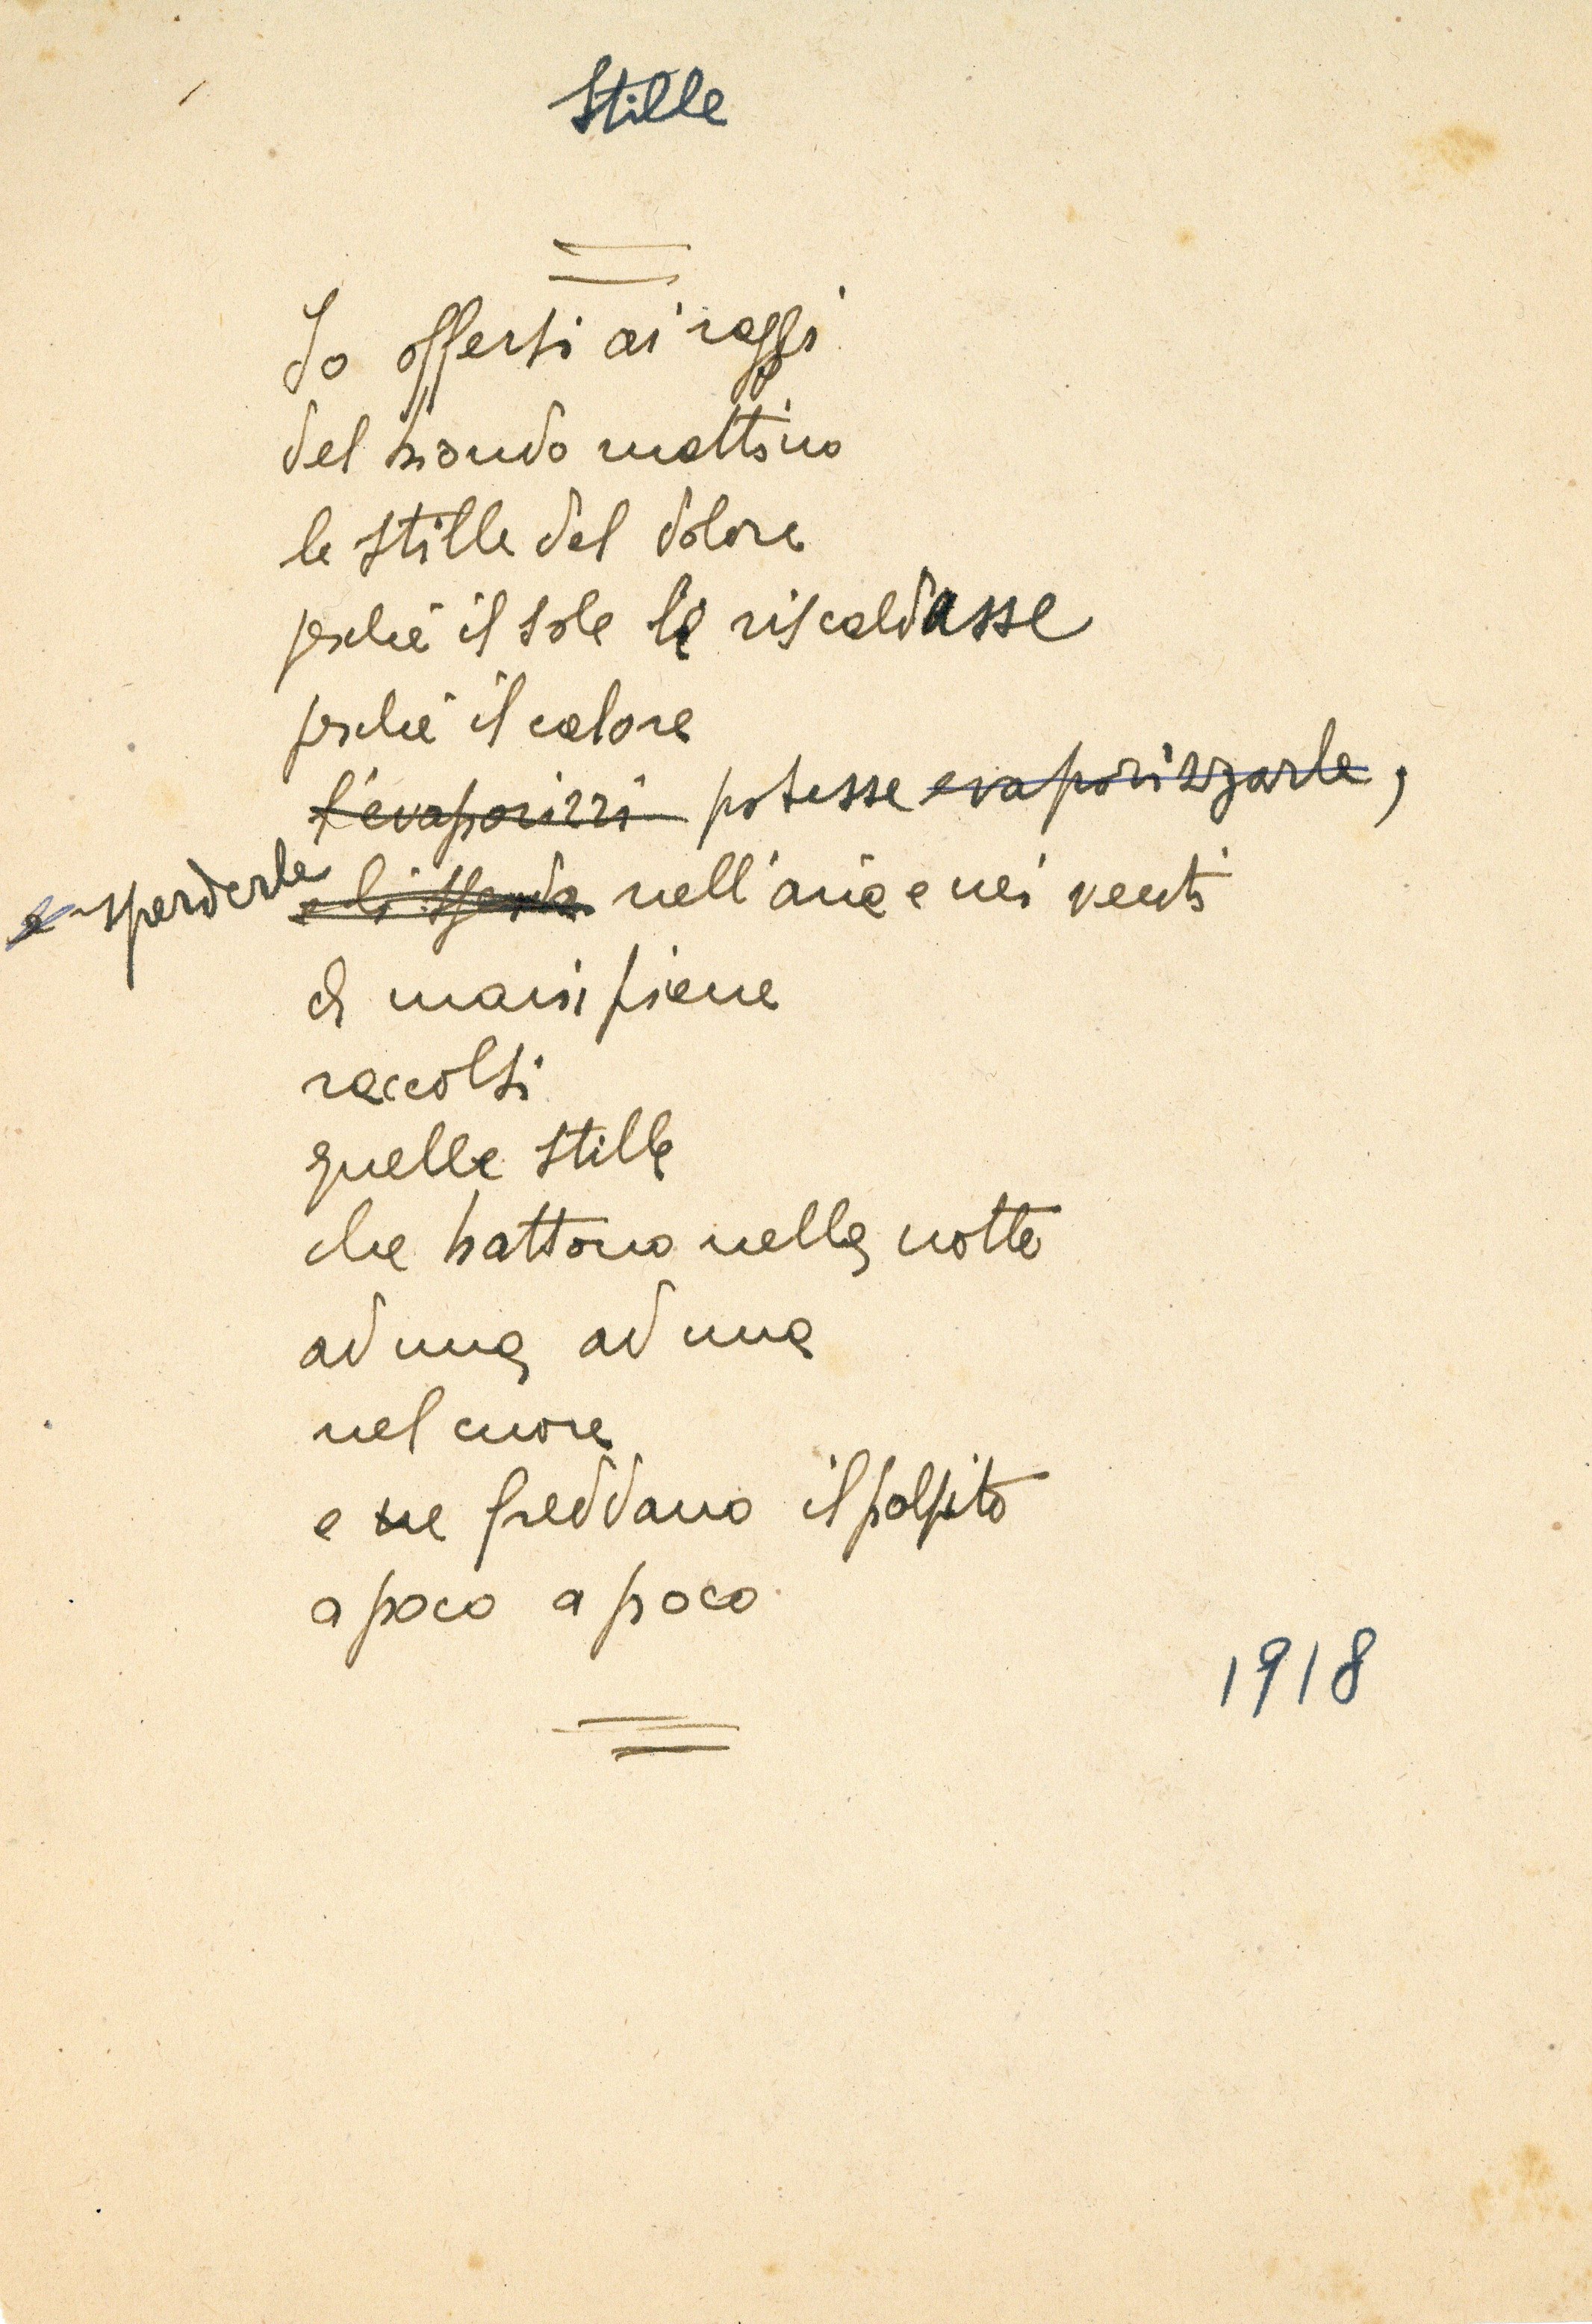 Stille
Io offersi ai raggi
del biondo mattino
le stille del dolore
perché il sole le riscaldasse
perché il calore
l'evaporizzi potesse evaporizzarle,
e sperderle e li sperda nell'aria e nei venti
A mani piene
raccolsi
quelle stille
che battono nella notte
ad una ad una
nel cuore
e ne freddano il palpito
a poco a poco
1918